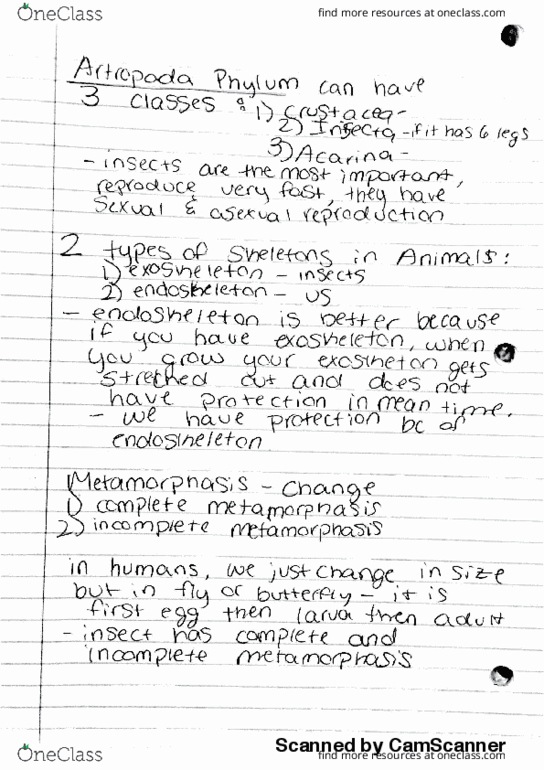 OneClass
find more resources at oneclass.com
Artropada Phylum can have
3 classes: 1) Crustacea-
2) Insecta - if it has 6 legs
3) Acarina-
- insects are the most important,
reproduce very fast, they have
sexual & asexual reproduction
2 types of skeletons in Animals:
1) exoskeleton - insects
2) endoskeleton - us
- endoskeleton is better because
if you have exoskeleton, when
you grow your exoskleton gets
stretched out and does not
have protection in mean time.
- we have protection bc of
endoskeleton
Metamorphasis - change
1) complete metamorphasis
2) incomplete metamorphasis
in humans, we just change in size
but in fly or butterfly - it is
first egg then larva then adult
- insect has complete and
incomplete metamorphasis
Scanned by CamScanner
OneClass
find more resources at oneclass.com